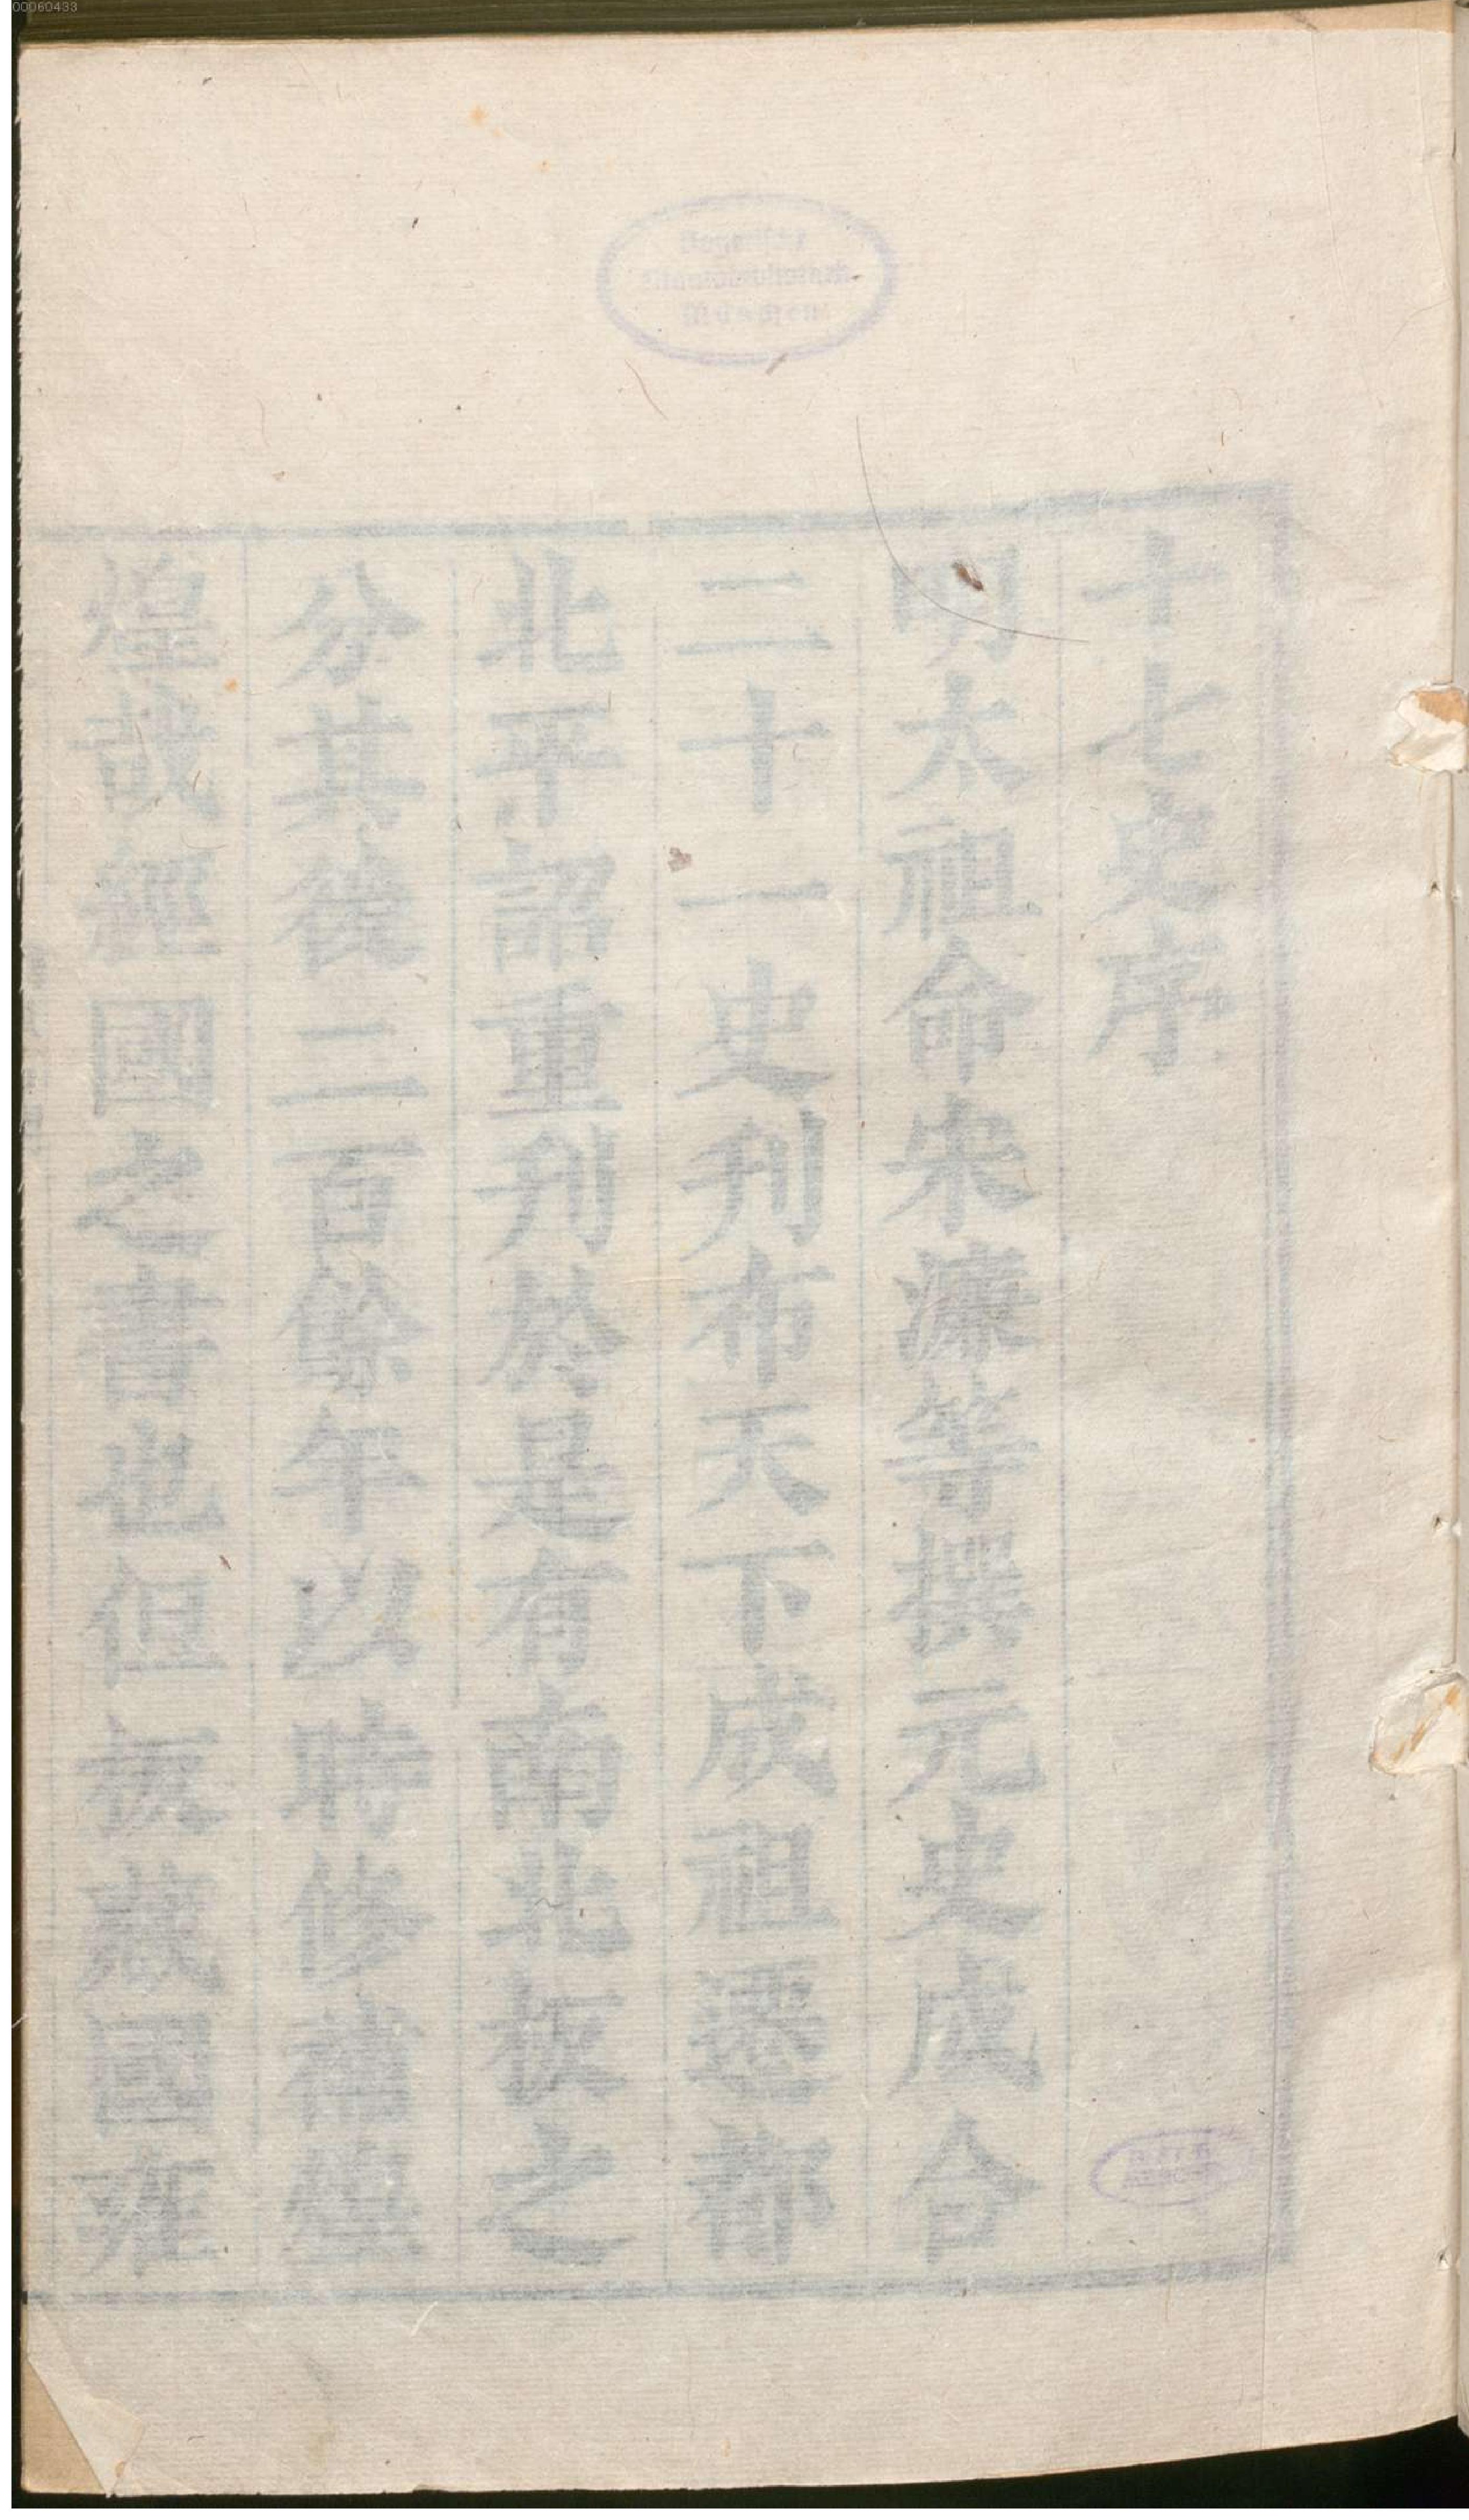 00060433
Bayerische
Staatsbibliothek
München
十七史序
明太祖命宋濂等撰元史成合
二十一史刋布天下成祖遷都
北平詔重刋於是有南北板之
分其後二百餘年以時修補煌
煌哉經國之書也但板藏國雍